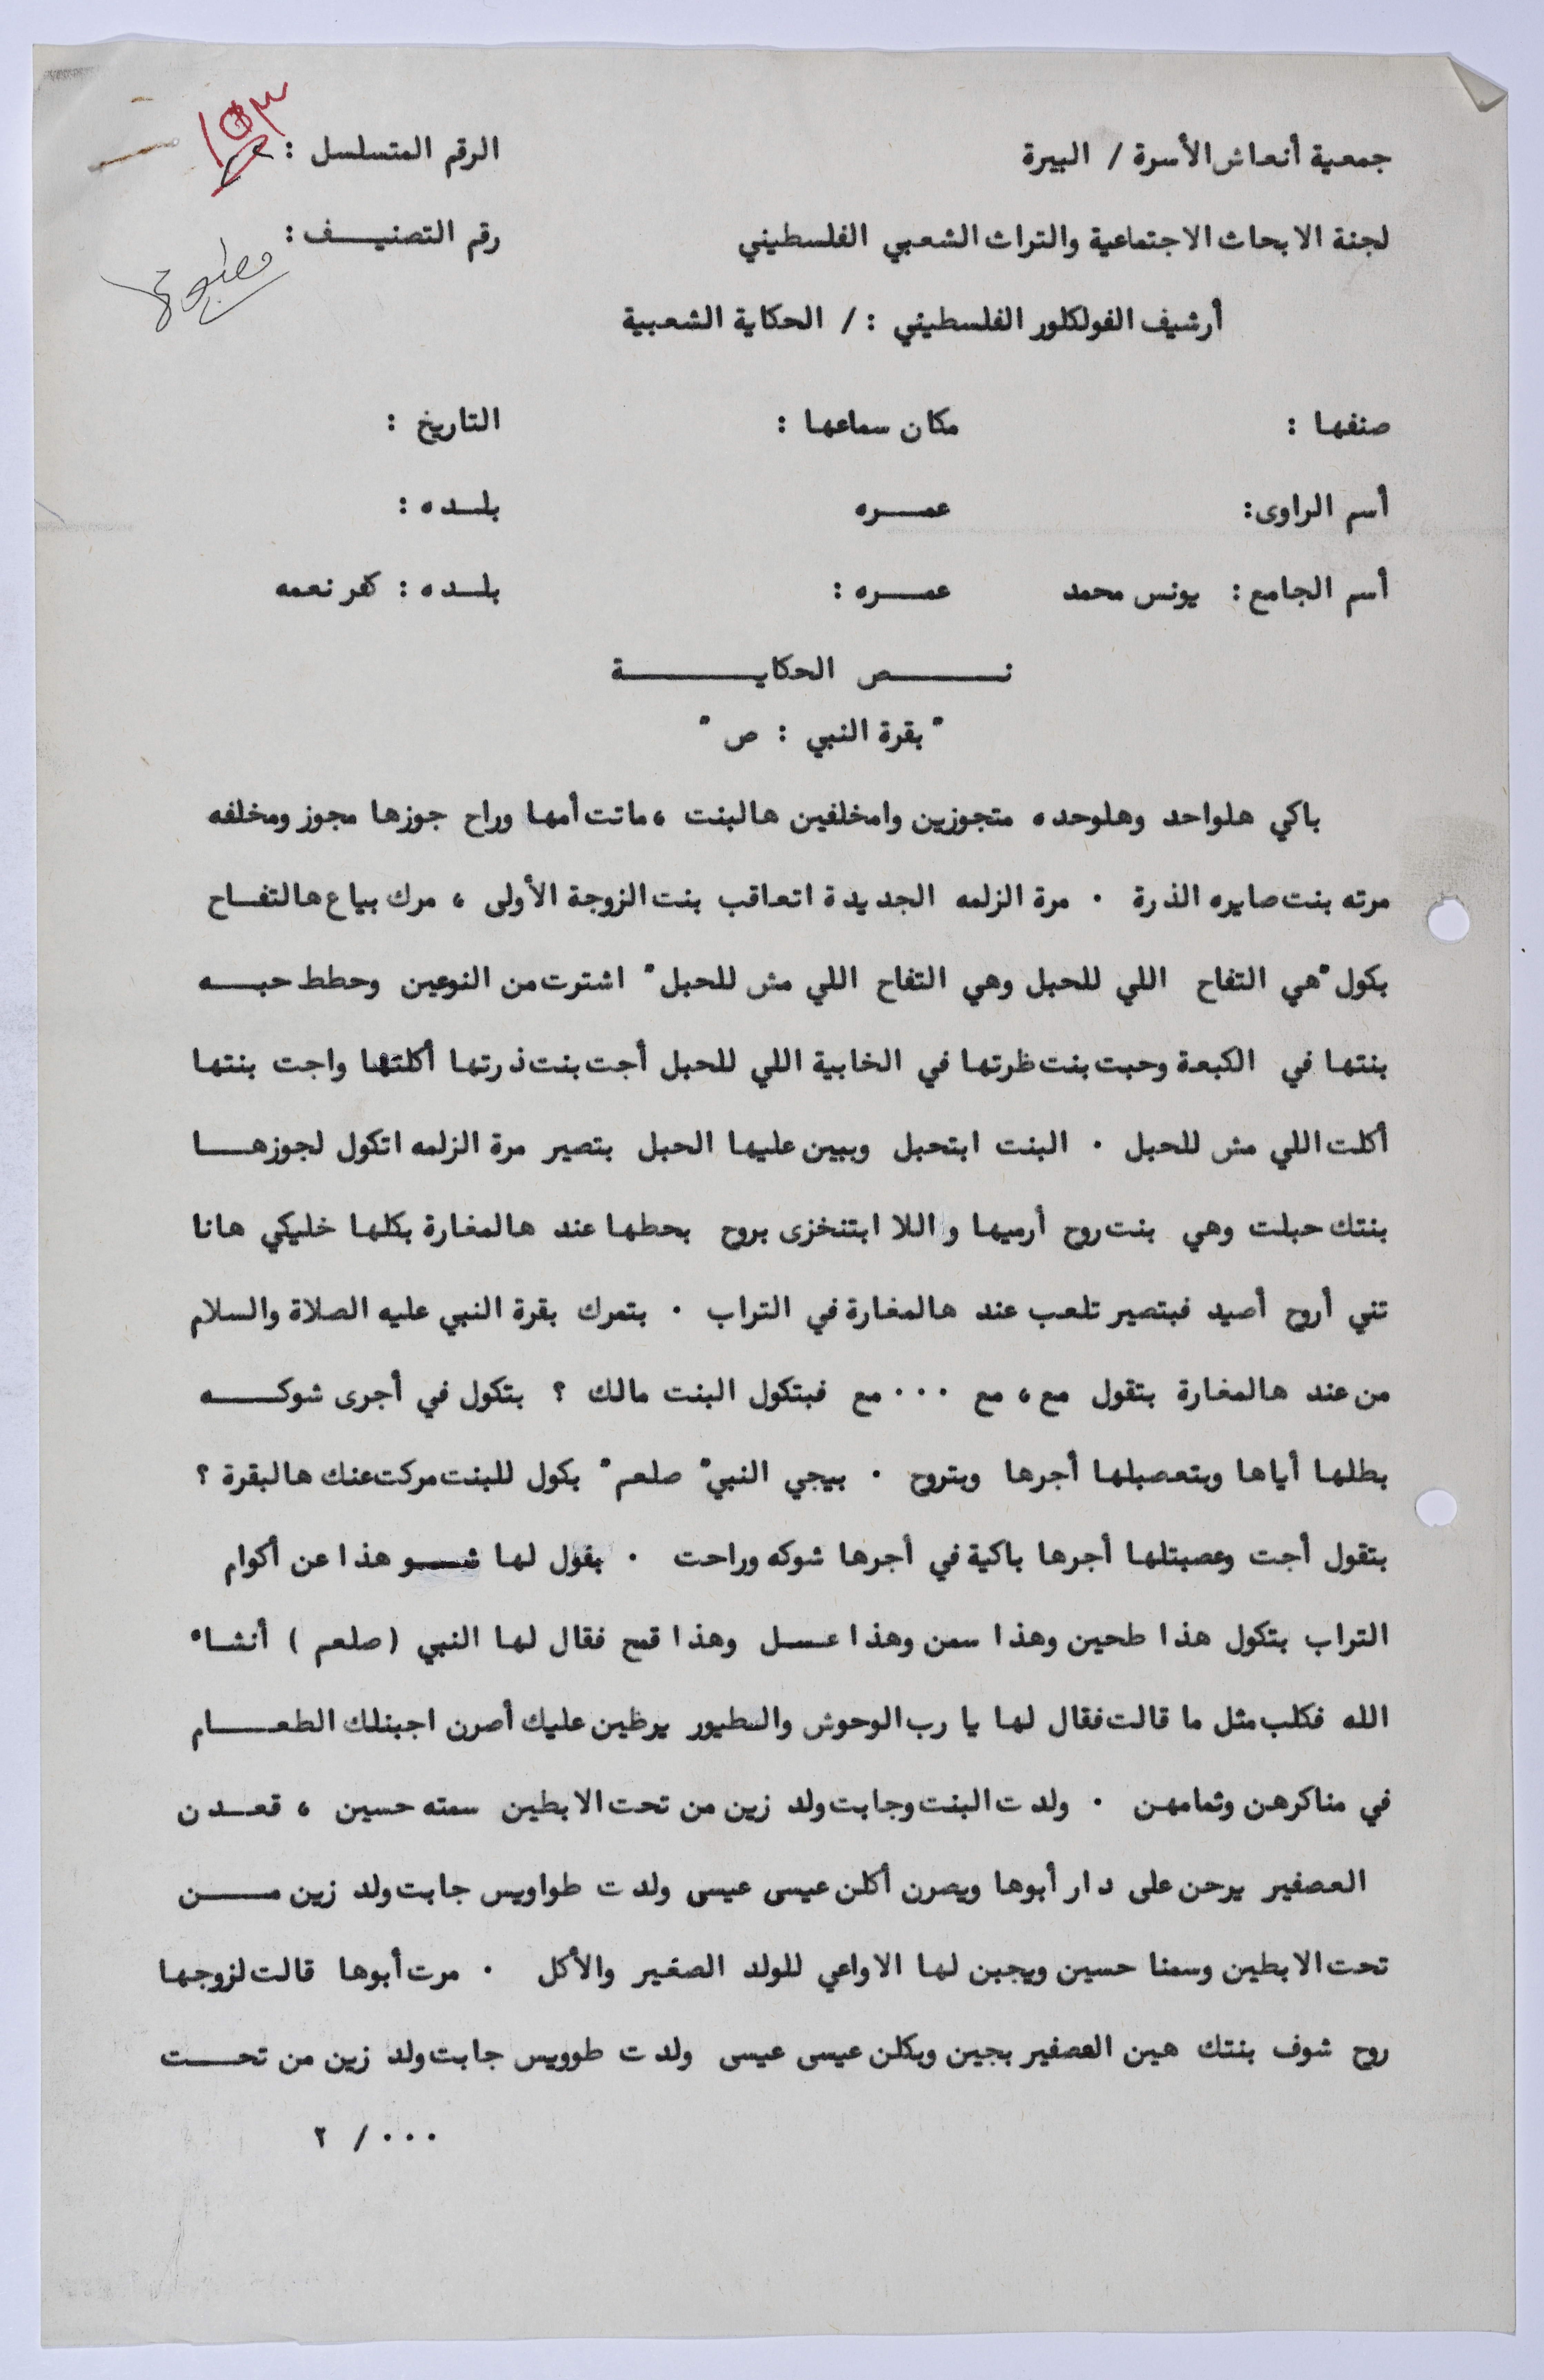 جمعية أنعاش الأسرة / البيرة
الرقم المتسلسل : ١٥٣
لجنة الابحاث الاجتماعية والتراث الشعبي الفلسطيني
رقم التصنيـــف :
أرشيف الفولكلور الفلسطيني : / الحكاية الشعبية
صنفها : مكان سماعها : التاريخ :
أسم الراوى: عمـــره بلــده :
أسم الجامع : يونس محمد عمـــره : بلــده : كفر نعمه
نـــــص الحكايـــــة
" بقرة النبي : ص "
باكي هلواحد وهلوحده متجوزين وامخلفين هالبنت ، ماتت أمها وراح جوزها مجوز ومخلفه
مرته بنت صايره الذرة . مرة الزلمه الجديدة اتعاقب بنت الزوجة الأولى ، مرك بياع هالتفــاح
بكول "هي التفاح اللي للحبل وهي التفاح اللي مش للحبل" اشترت من النوعين وحطط حبـــه
بنتها في الكبعة وحبت بنت ظرتها في الخابية اللي للحبل أجت بنت ذرتها أكلتها واجت بنتها
أكلت اللي مش للحبل . البنت ابتحبل وبيين عليها الحبل بتصير مرة الزلمه اتكول لجوزهـــا
بنتك حبلت وهي بنت روح أرميها واللا ابتنخزى بروح بحطها عند هالمغارة بكلها خليكي هانا
تني أروح أصيد فبتصير تلعب عند هالمغارة في التراب . بتمرك بقرة النبي عليه الصلاة والسلام
من عند هالمغارة بتقول مع ، مع ... مع فبتكول البنت مالك ؟ بتكول في أجرى شوكـــه
بطلها أياها وبتعصبلها أجرها وبتروح . بيجي النبي" صلعم" بكول للبنت مركت عنك هالبقرة ؟
بتقول أجت وعصبتلها أجرها باكية في أجرها شوكه وراحت . بقول لها شـــو هذا عن أكوام
التراب بتكول هذا طحين وهذا سمن وهذا عســل وهذا قمح فقال لها النبي (صلعم ) أنشاء
الله فكلب مثل ما قالت فقال لها يا رب الوحوش والطيور يرظين عليك أصرن اجبنلك الطعـــام
في مناكرهن وثمامهن . ولدت البنت وجابت ولد زين من تحت الابطين سمته حسين ، قعــدن
العصفير يرحن على دار أبوها ويصرن أكلن عيسى عيسى ولدت طواويس جابت ولد زين مـــن
تحت الابطين وسمنا حسين ويجبن لها الاواعي للولد الصغير والأكل . مرت أبوها قالت لزوجها
روح شوف بنتك هين العصفير بجين وبكلن عيسى عيسى ولدت طوويس جابت ولد زين من تحـــت
٢ / ...